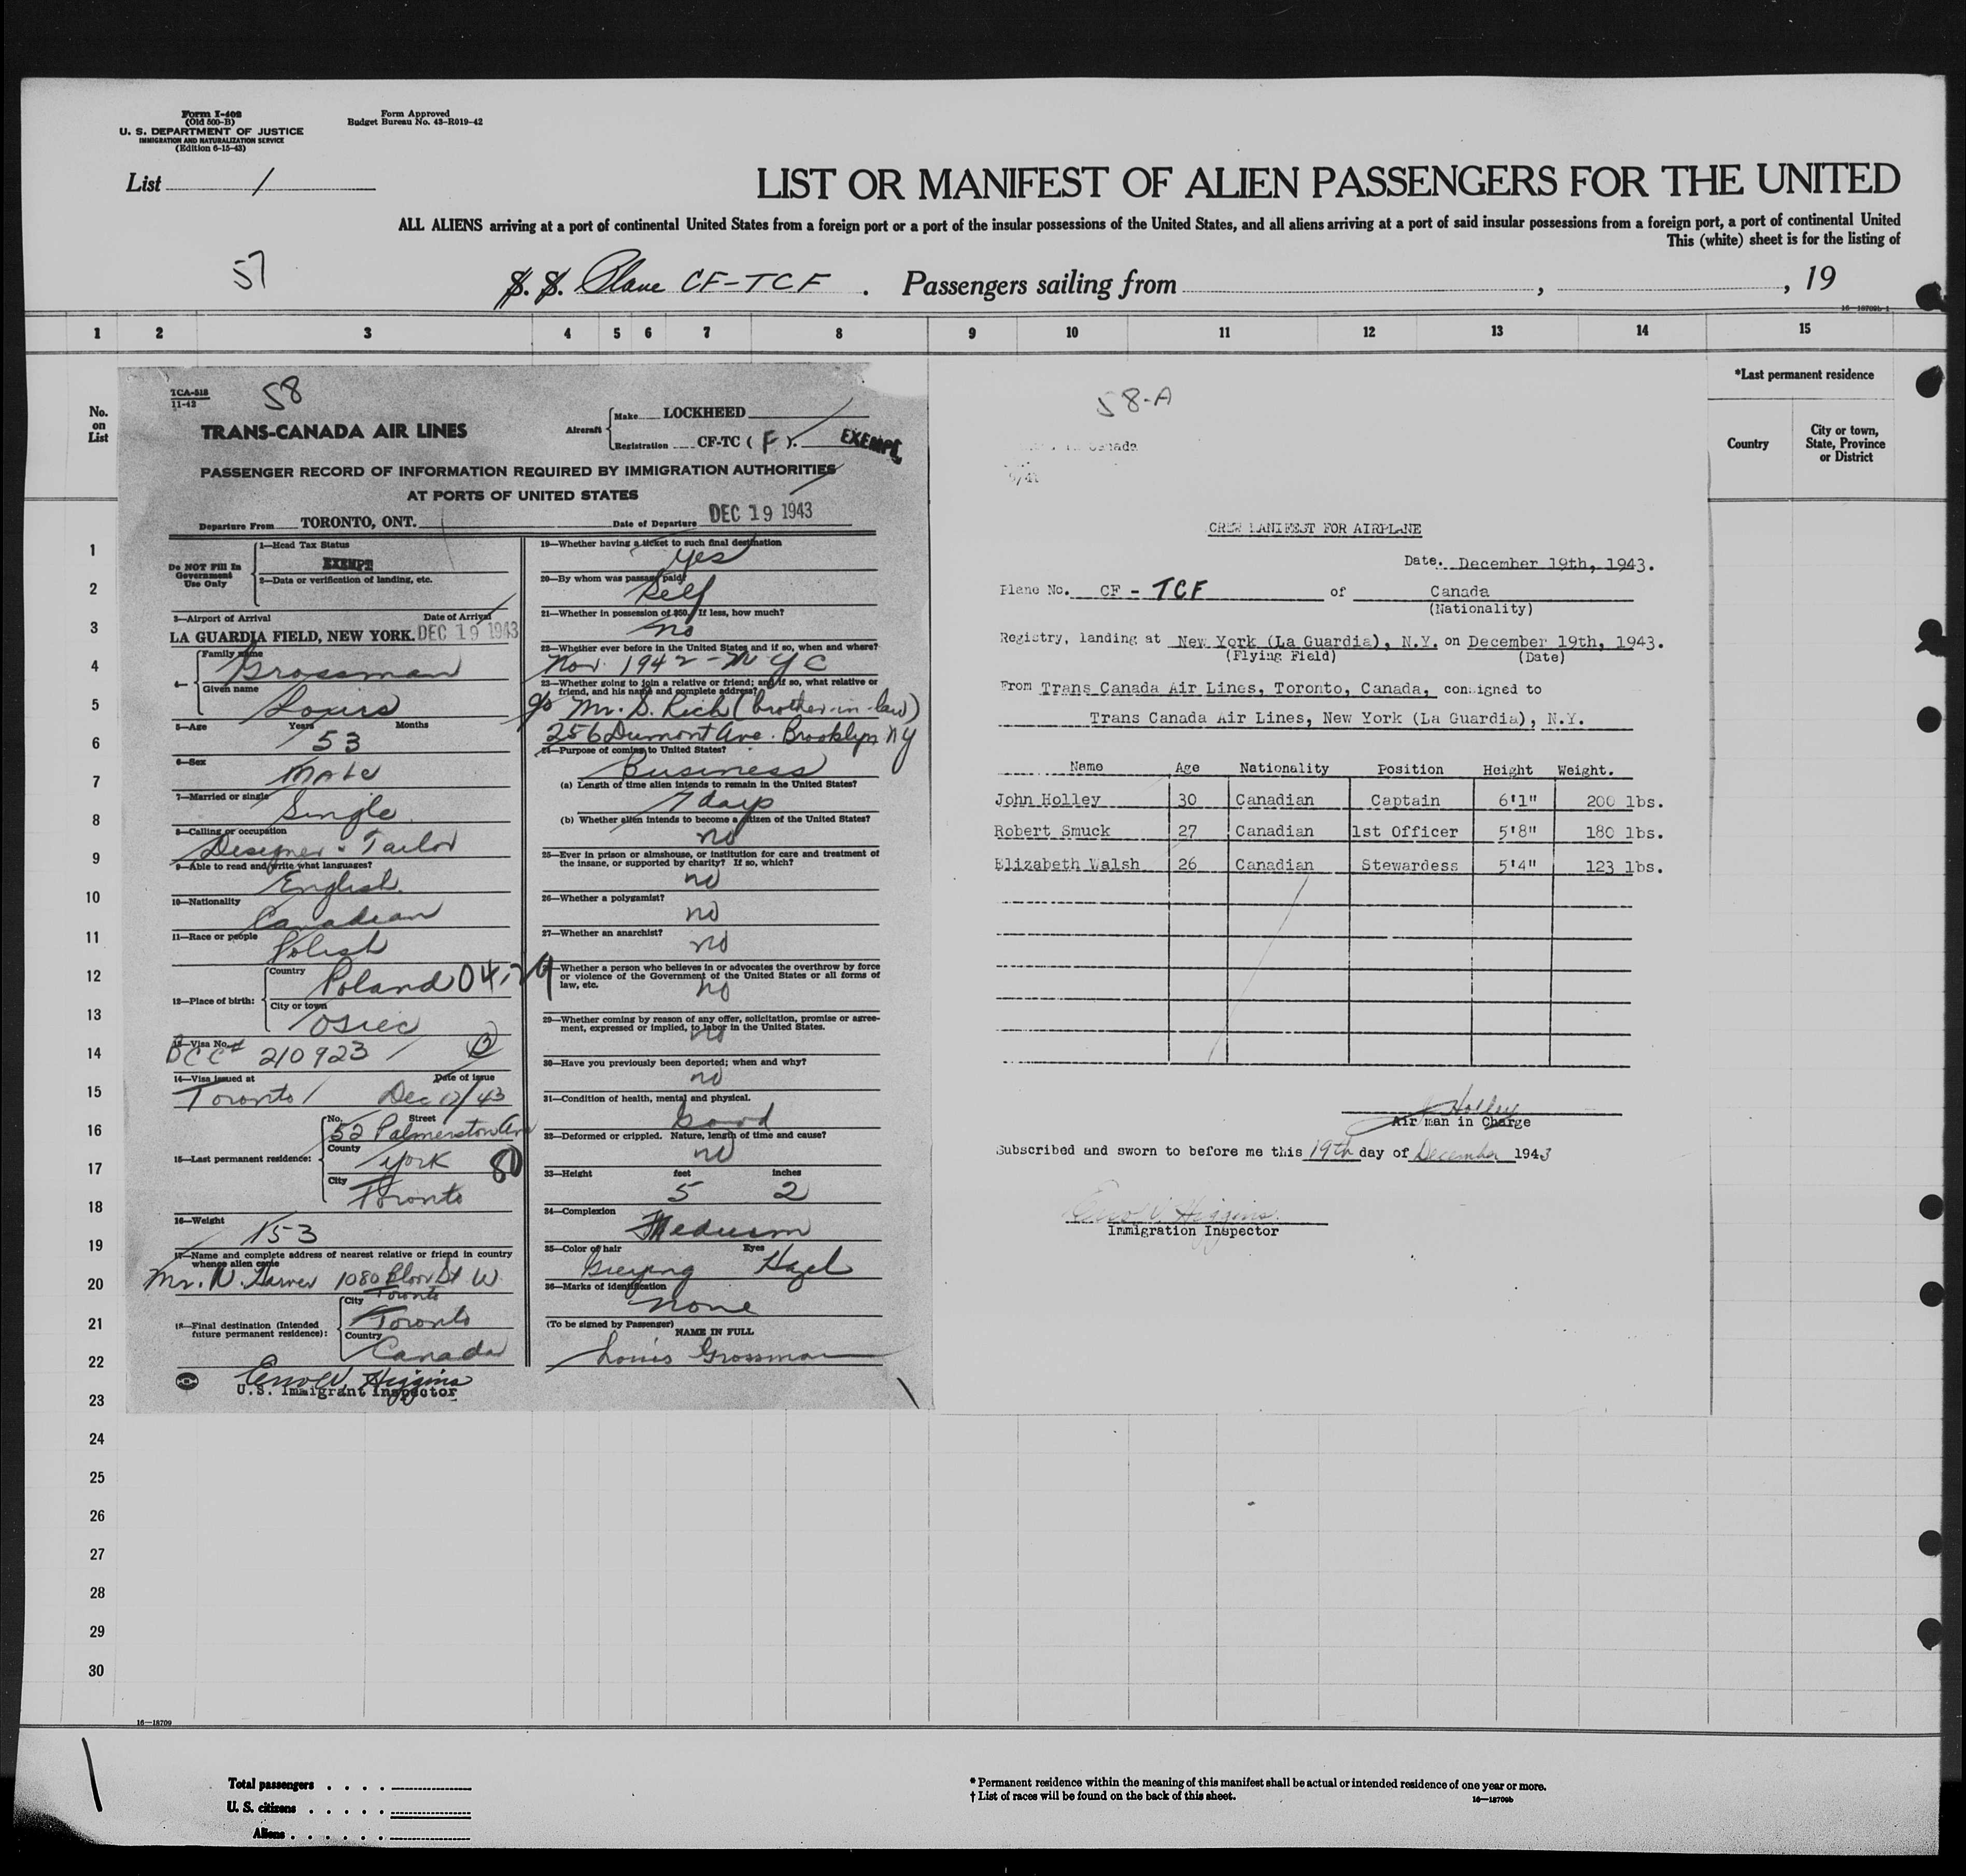 Form I-402
(Old 500-B)
U. S. DEPARTMENT OF JUSTICE
IMMIGRATION AND NATURALIZATION SERVICE
(Edition 6-15-43)
Form Approved
Budget Bureau No. 43-R019-42
List 1
LIST OR MANIFEST OF ALIEN PASSENGERS FOR THE UNITED
ALL ALIENS arriving at a port of continental United States from a foreign port or a port of the insular possessions of the United States, and all aliens arriving at a port of said insular possessions from a foreign port, a port of continental United
This (white) sheet is for the listing of
57
S. S. Plane CF-TCF . Passengers sailing from , , 19
16—18709b-1
1 2 3 4 5 6 7 8 9 10 11 12 13 14 15
No.
on
List
*Last permanent residence
Country
City or town,
State, Province
or District
TCA-518
11-42
58
TRANS-CANADA AIR LINES
Aircraft
Make LOCKHEED
Registration CF-TC ( F ).
EXEMPT
PASSENGER RECORD OF INFORMATION REQUIRED BY IMMIGRATION AUTHORITIES
AT PORTS OF UNITED STATES
Departure From TORONTO, ONT. Date of Departure DEC 19 1943
Do NOT Fill In
Government
Use Only
1—Head Tax Status
EXEMPT
2—Data or verification of landing, etc.
3—Airport of Arrival Date of Arrival
LA GUARDIA FIELD, NEW YORK. DEC 19 1943
4—
Family name
Grossman
Given name
Louis
5—Age Years Months
53
6—Sex
Male
7—Married or single
Single
8—Calling or occupation
Designer & Tailor
9—Able to read and write what languages?
English
10—Nationality
Canadian
11—Race or people
Polish
12—Place of birth:
Country
Poland
City or town
Osiec
13—Visa No.
BCC# 210923
14—Visa issued at Date of issue
Toronto Dec 12/43
15—Last permanent residence:
No. Street
52 Palmerston Ave
County
York
80
City
Toronto
16—Weight
153
17—Name and complete address of nearest relative or friend in country
whence alien came
Mr. N. 1080 Bloor St W.
Toronto
18—Final destination (Intended
future permanent residence):
City
Toronto
Country
Canada
Errol V. Higgins
U.S. Immigrant Inspector
19—Whether having a ticket to such final destination
yes
20—By whom was passage paid?
Self
21—Whether in possession of $50. If less, how much?
no
22—Whether ever before in the United States and if so, when and where?
Nov. 1942 - NYC
23—Whether going to join a relative or friend; and if so, what relative or
friend, and his name and complete address?
c/o Mr. S. Rich (brother-in-law)
256 Dumont Ave. Brooklyn NY
24—Purpose of coming to United States?
Business
(a) Length of time alien intends to remain in the United States?
7 days
(b) Whether alien intends to become a citizen of the United States?
no
25—Ever in prison or almshouse, or institution for care and treatment of
the insane, or supported by charity? If so, which?
no
26—Whether a polygamist?
no
27—Whether an anarchist?
no
Whether a person who believes in or advocates the overthrow by force
or violence of the Government of the United States or all forms of
law, etc.
no
29—Whether coming by reason of any offer, solicitation, promise or agree-
ment, expressed or implied, to labor in the United States.
no
30—Have you previously been deported; when and why?
no
31—Condition of health, mental and physical.
Good
32—Deformed or crippled. Nature, length of time and cause?
no
33—Height feet inches
5 2
34—Complexion
Medium
35—Color of hair Eyes
Greying Hazel
36—Marks of identification
none
(To be signed by Passenger)
NAME IN FULL
Louis Grossman
58-A
Canada
CREW MANIFEST FOR AIRPLANE
Date. December 19th, 1943.
Plane No. CF - TCF of Canada
(Nationality)
Registry, landing at New York (La Guardia), N.Y. on December 19th, 1943.
(Flying Field) (Date)
From Trans Canada Air Lines, Toronto, Canada, consigned to
Trans Canada Air Lines, New York (La Guardia), N.Y.
Name Age Nationality Position Height Weight.
John Holley 30 Canadian Captain 6'1" 200 lbs.
Robert Smuck 27 Canadian 1st Officer 5'8" 180 lbs.
Elizabeth Walsh 26 Canadian Stewardess 5'4" 123 lbs.
J Holley
Air man in Charge
Subscribed and sworn to before me this 19th day of December 1943
Errol V. Higgins
Immigration Inspector
1
2
3
4
5
6
7
8
9
10
11
12
13
14
15
16
17
18
19
20
21
22
23
24
25
26
27
28
29
30
16—18709
Total passengers . . . .
U. S. citizens . . . . .
Aliens . . . . . .
* Permanent residence within the meaning of this manifest shall be actual or intended residence of one year or more.
† List of races will be found on the back of this sheet.
16—18709b